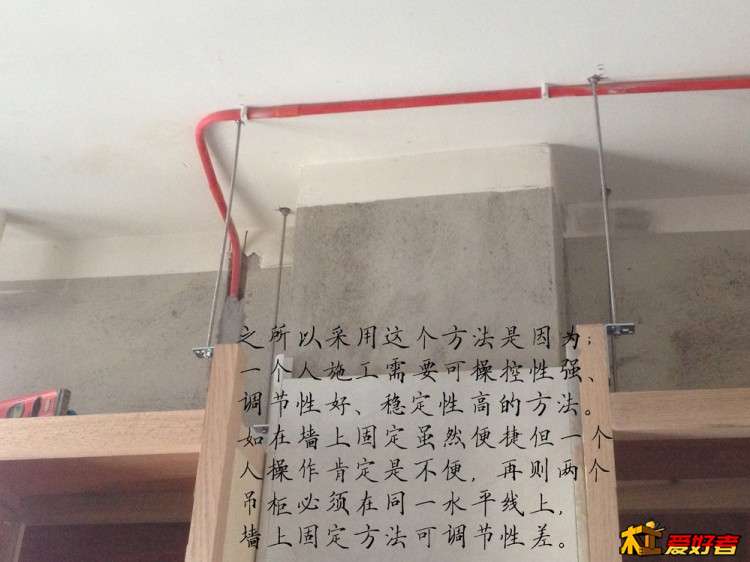 之所以采用这个方法是因为;
一个人施工需要可操控性强、
调节性好、稳定性高的方法。
如在墙上固定虽然便捷但一个
人操作肯定是不便,再则两个
吊柜必须在同一水平线上,
墙上固定方法可调节性差。
木工爱好者